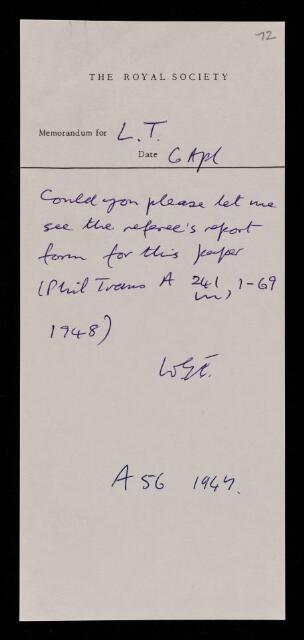 72
THE ROYAL SOCIETY
Memorandum for L.T.
Date 6 Apl
Could you please let me
see the referee's report
form for this paper
(Phil Trans A 241, 1-69
1948)
A 56 1947.